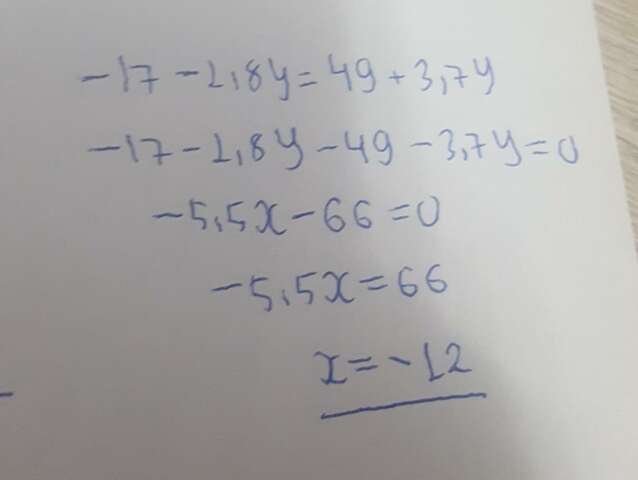 -17-1,8y=49+3,7y
-17-1,8y-49-3,7y=0
-5,5x-66=0
-5,5x=66
x=-12